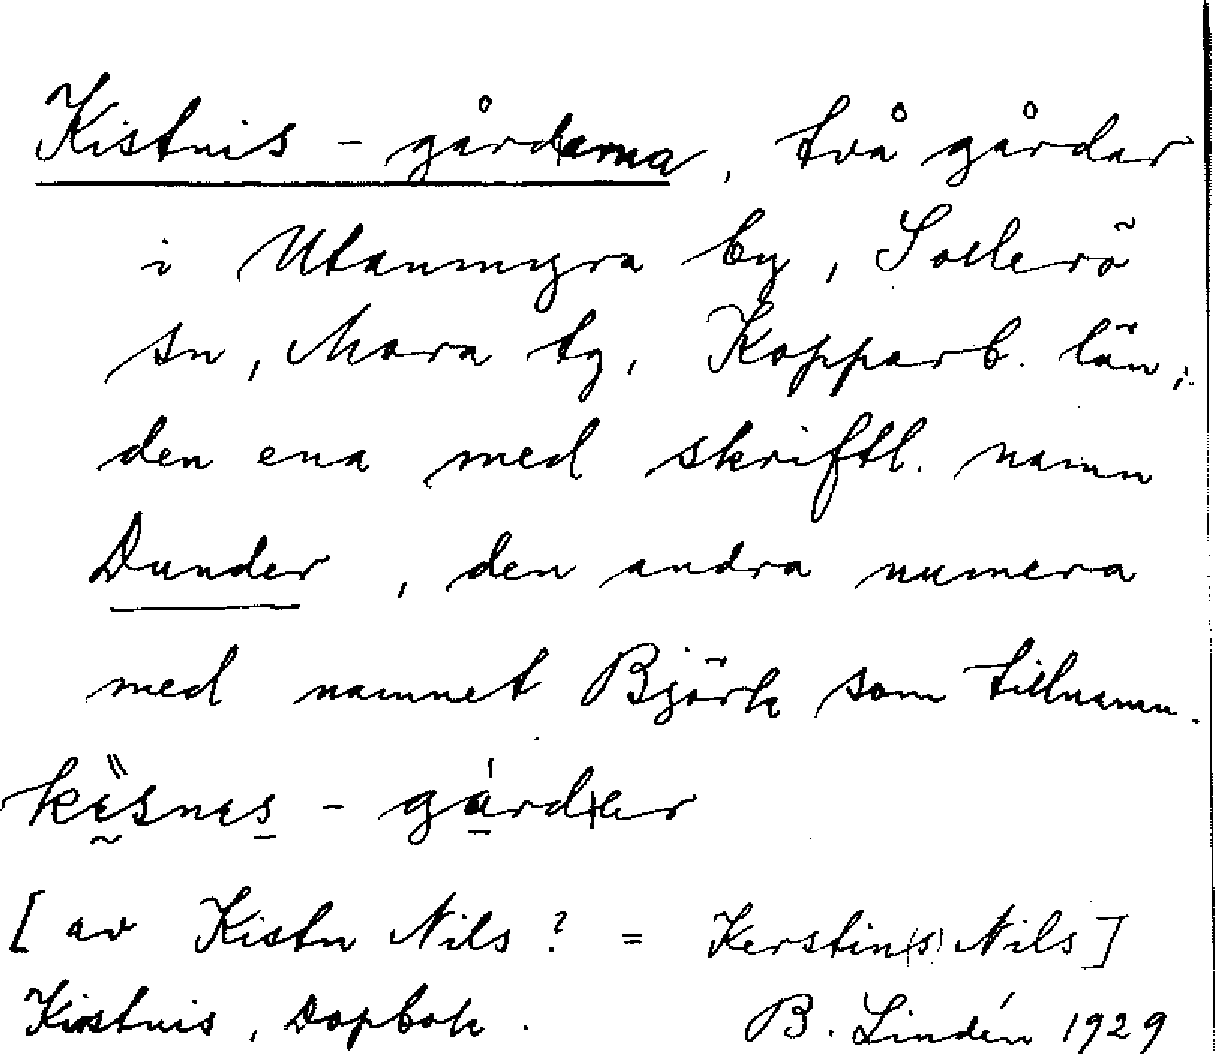 Kistnis - gårdarna, två gårdar
i Utanmyra by, Sollerö
sn, Mora tg, Kopparb. län;
den ena med skriftl. namn
Dunder, den andra numera
med namnet Björk som tillnamn.
- gárder
[av Kistn Nils? = Kerstin(s) Nils]
Kistnis, Dopbok. B. Lindén 1929